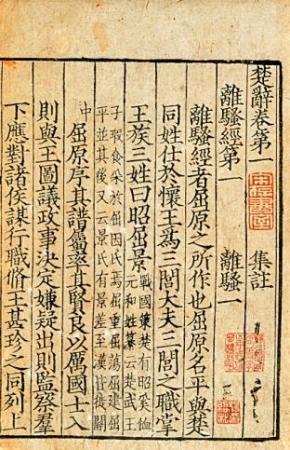 楚辭卷第一 集註
離騷經第一 離騷一
離騷經者屈原之所作也屈原名平與楚
同姓仕於懷王爲三閭大夫三閭之職掌
王族三姓曰昭屈景
戰國策楚有昭奚恤
元和姓纂云楚武王
子瑕食采於屈因氏焉屈重屈蕩屈建屈
平並其後又云景氏有景差至漢皆徙關
中屈原序其譜屬率其賢良以厲國士入
則與王圖議政事決定嫌疑出則監察羣
下應對諸侯謀行職脩王甚珍之同列上